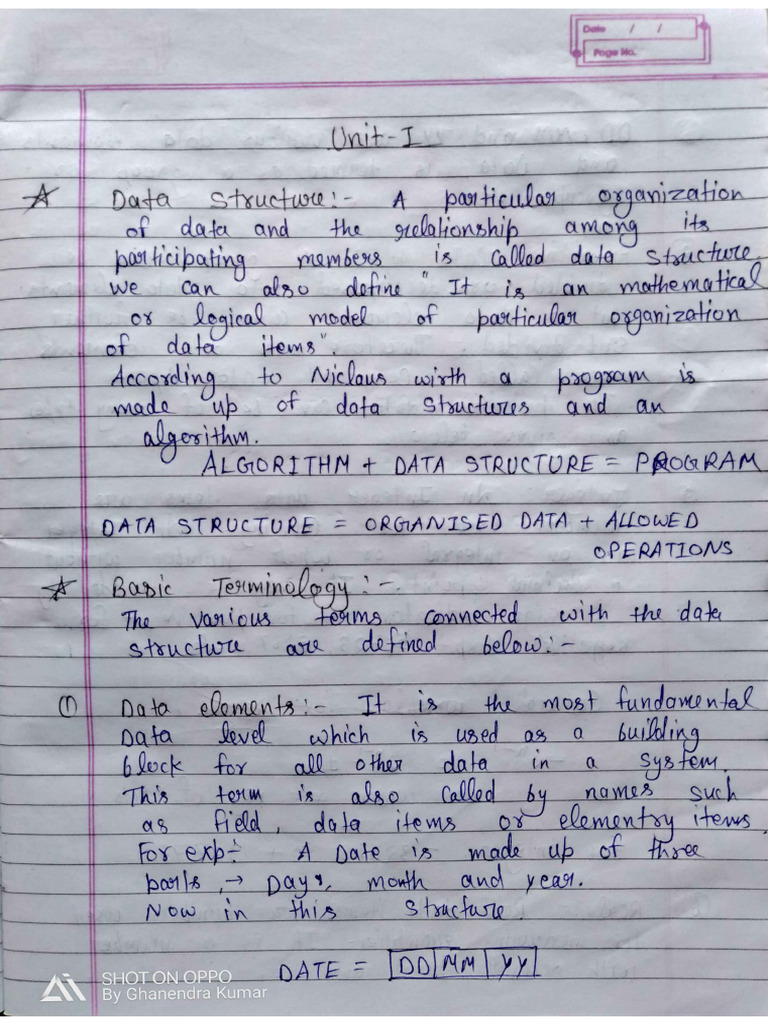 Date / /
Page No.
Unit-I
☆ Data Structure:- A particular organization
of data and the relationship among its
participating members is called data structure.
We can also define "It is an mathematical
or logical model of particular organization
of data items".
According to Niclaus wirth a program is
made up of data structures and an
algorithm.
ALGORITHM + DATA STRUCTURE = PROGRAM
DATA STRUCTURE = ORGANISED DATA + ALLOWED
OPERATIONS
☆ Basic Terminology:-
The various terms connected with the data
structure are defined below:-
① Data elements:- It is the most fundamental
Data level which is used as a building
block for all other data in a system.
This term is also called by names such
as field, data items or elementry items.
For exp÷ A Date is made up of three
parts, → Days, month and year.
Now in this structure.
DATE = |DD|MM|YY|
SHOT ON OPPO
By Ghanendra Kumar